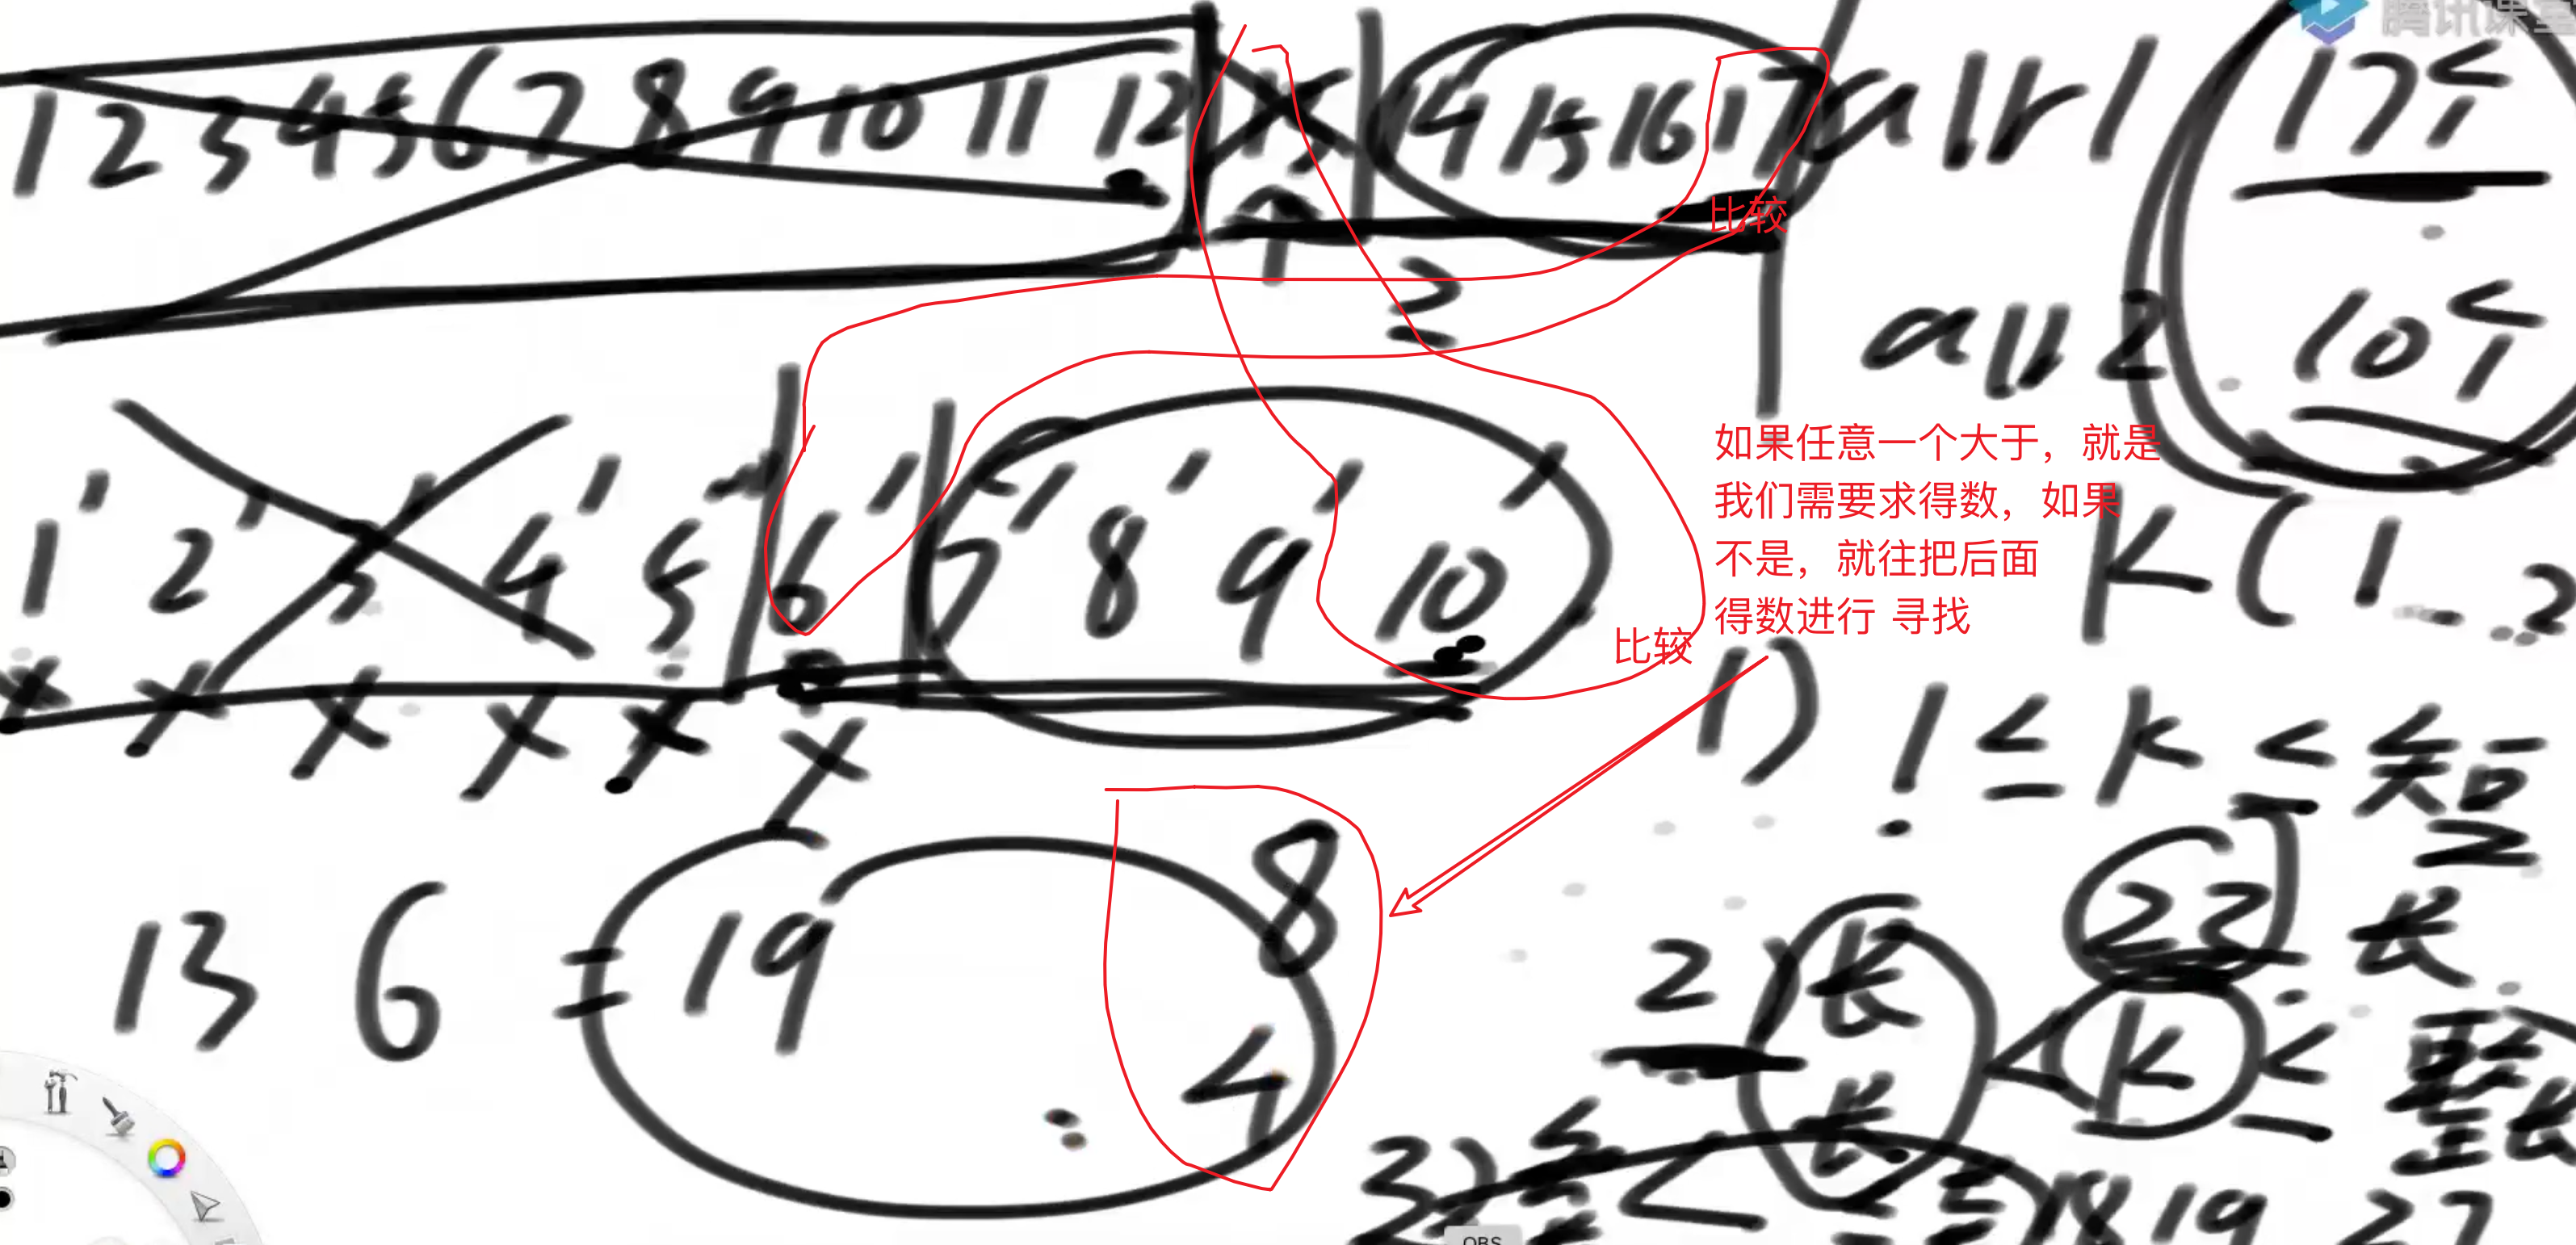 腾讯课堂
1 2 3 4 5 6 7 8 9 10 11 12 13 14 15 16 17 arr1 17个
比较
arr2 10个
1' 2' 3' 4' 5' 6' 7' 8' 9' 10'
如果任意一个大于，就是
我们需要求得数，如果
不是，就往把后面
得数进行 寻找
比较
K (1
1) 1 ≤ K ≤ 短
8
13 6 = 19
4
23 长
2) 长 < K ≤ 整长
3) 长 <
18 19 27
OBS